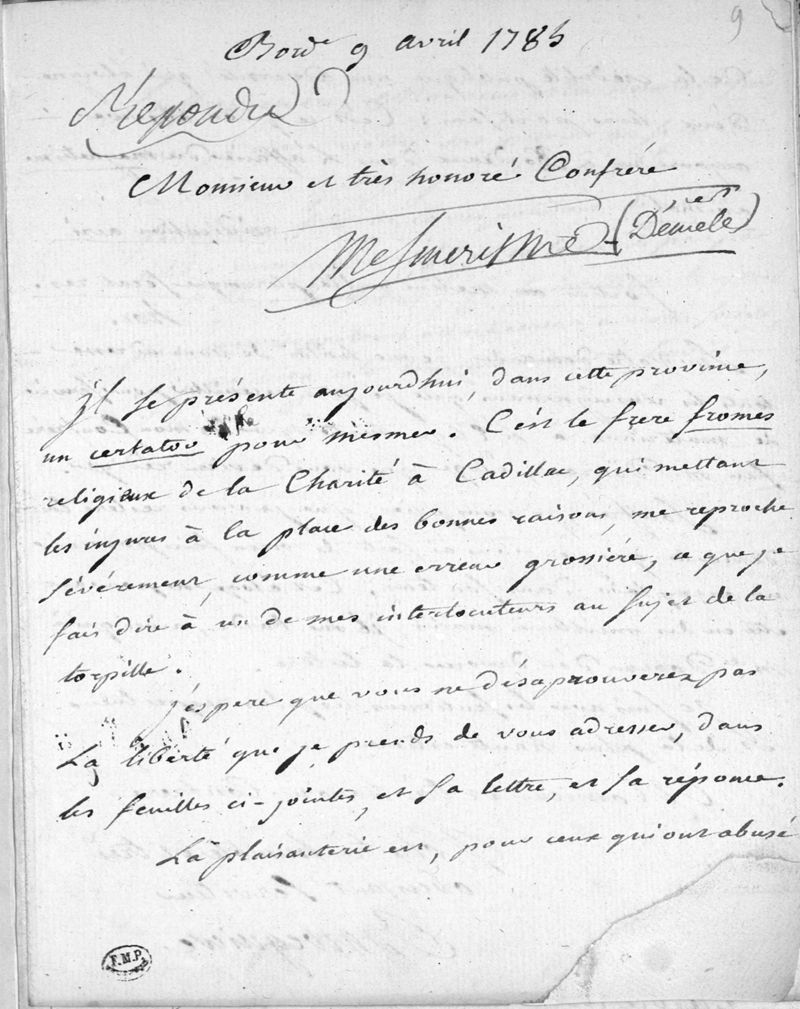 9
Bord.x 9 avril 1785
Répondu
Monsieur et très honoré Confrére
Mesmerisme (Démelé)
jl se présente aujourdhui, dans cette province,
un certator pour mesmer. C'est le frere fromes
religieux de la Charité à Cadillac, qui mettant
les injures à la place des bonnes raisons, me reproche
sévérement, comme une erreur grossiére, ce que je
fais dire à un de mes interlocuteurs au sujet de la
torpille.
j'espere que vous ne désaprouverez pas
La liberté que je prends de vous adresser, dans
les feuilles ci-jointes, et sa lettre, et sa réponse.
La plaisanterie est, pour ceux qui ont abusé
F.M.P.